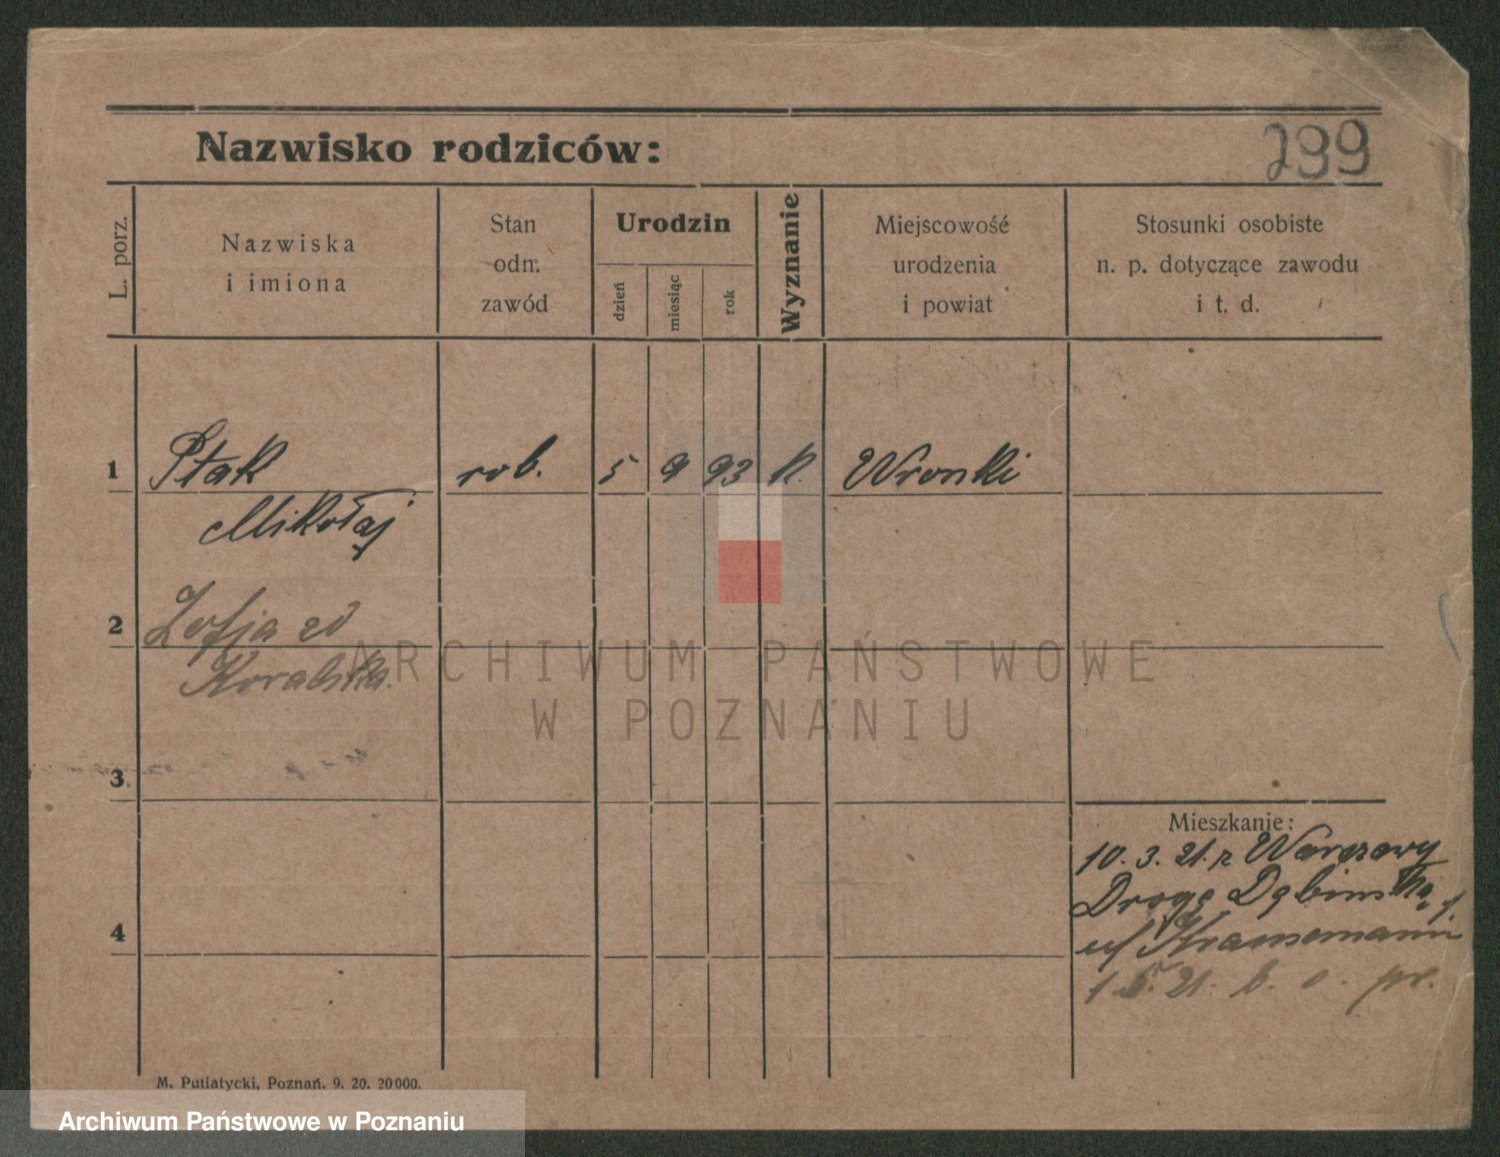 Nazwisko rodziców:
299
L. porz.
Nazwiska
i imiona
Stan
odn.
zawód
Urodzin
dzień
miesiąc
rok
Wyznanie
Miejscowość
urodzenia
i powiat
Stosunki osobiste
n. p. dotyczące zawodu
i t. d.
1 Ptak rob. 5 9 93 k. Wronki
Mikołaj
2 Zofja zd
ARCHIWUM PAŃSTWOWE
W POZNANIU
3
Mieszkanie:
10. 3. 21. z Warszawy
Droga Dębińska 1.
4
1. 5. 21. b. o. pr.
M. Putiatycki, Poznań. 9. 20. 20000.
Archiwum Państwowe w Poznaniu